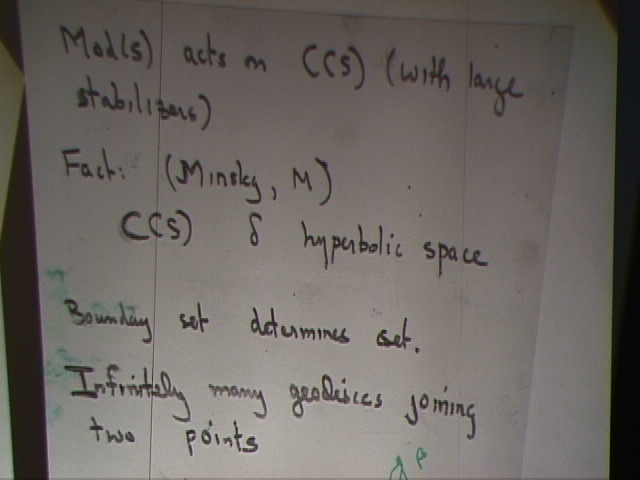 Mod(S) acts on C(S) (with large
stabilizers)
Fact: (Minsky, M)
C(S) δ hyperbolic space
Boundary set determines set.
Infinitely many geodesics joining
two points
β